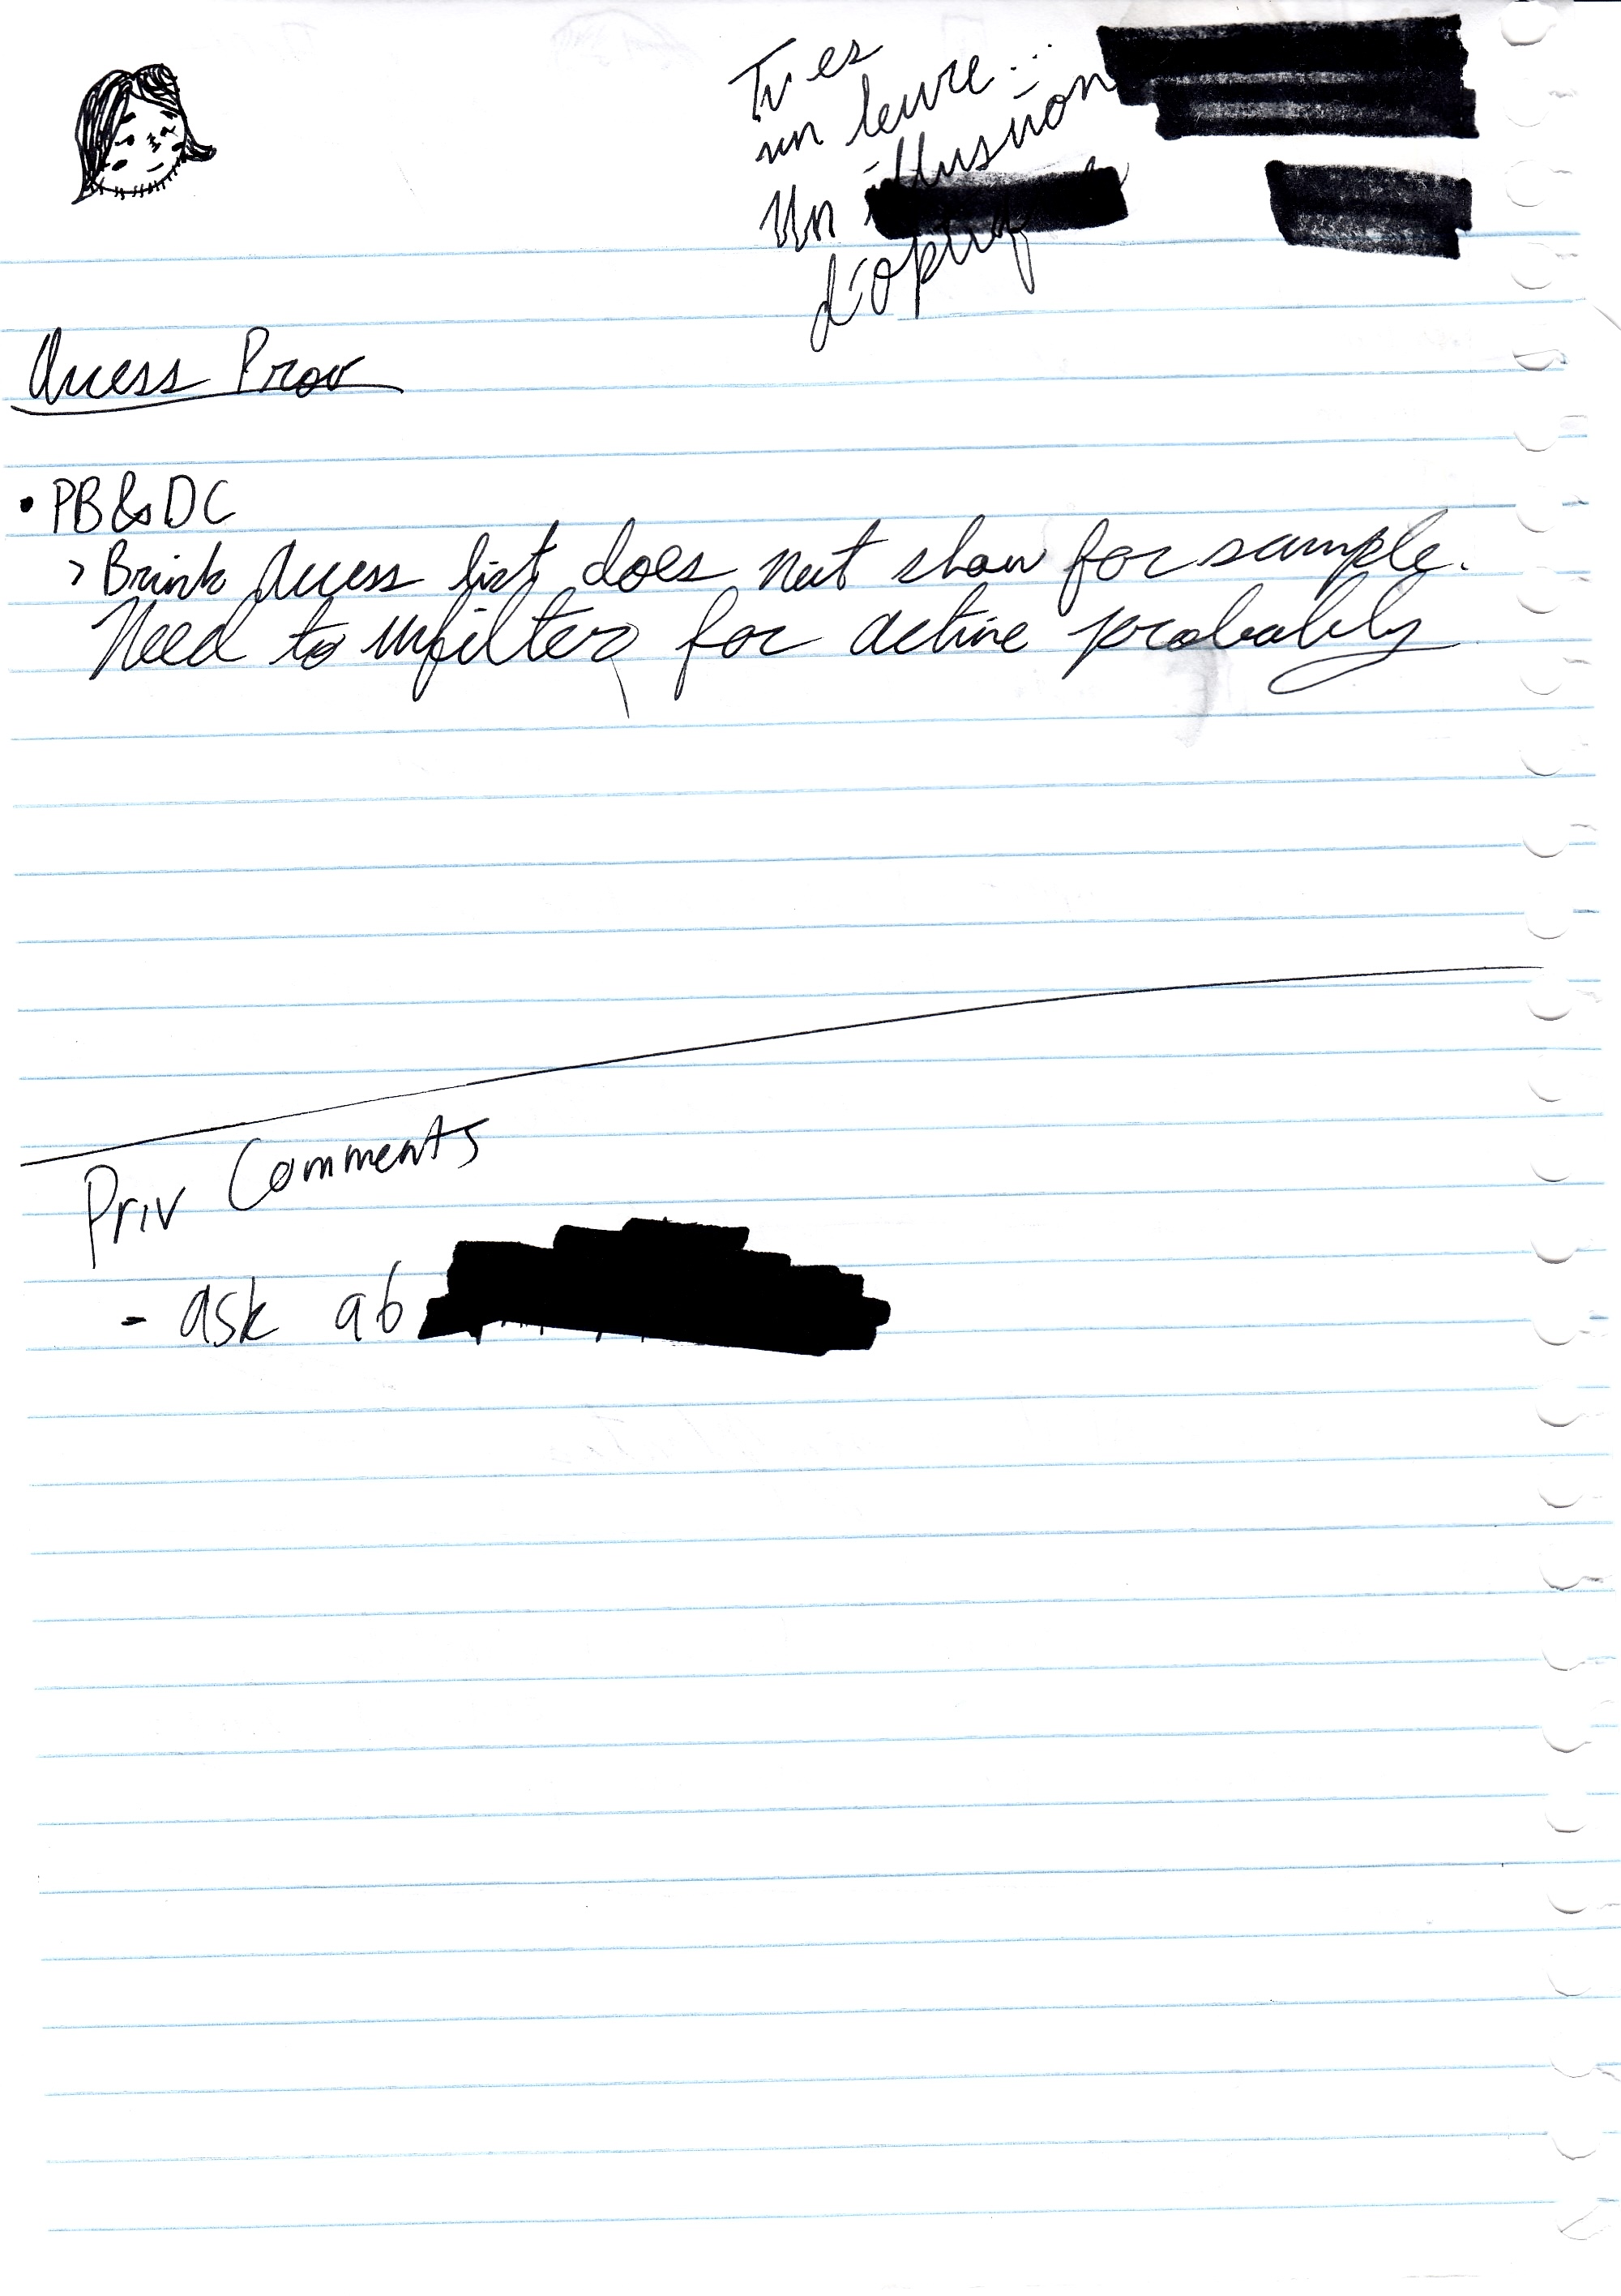 Tu es
un leurre...
Un illusion
d'optiq
Access Prov
• PB & DC
> Brink Access list does not show for sample.
Need to unfilter for active probably
Priv Comments
- ask ab